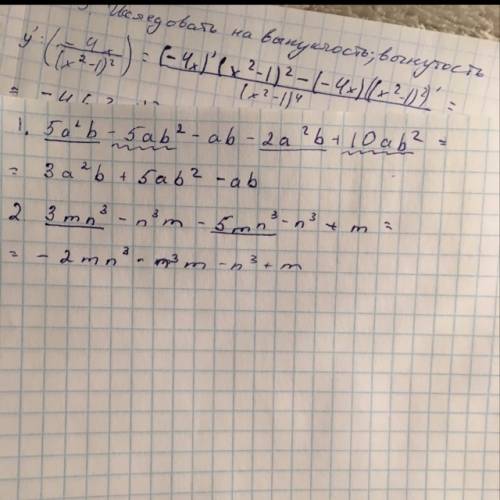 Исследовать на выпуклость; вогнутость
y': (-4x/(x²-1)²)' = ((-4x)'(x²-1)² - (-4x)((x²-1)²)')/(x²-1)⁴ =
= -4(
1. 5a²b - 5ab² - ab - 2a²b + 10ab² =
= 3a²b + 5ab² - ab
2 3mn³ - n³m - 5mn³ - n³ + m =
= - 2mn³ - n³m - n³ + m